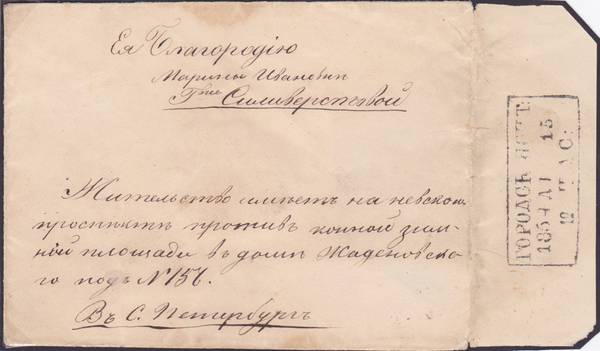 Ея Благородію
Марины Ивановнѣ
Гжѣ Силиверстовой
Жительство имѣетъ на невскомъ
проспектѣ противъ конной зим-
ной площади въ домѣ Жаденовска-
го подъ №156.
Въ С. Петербургъ
ГОРОДСК. ПОЧТ:
1854 15
12 ЧАС: